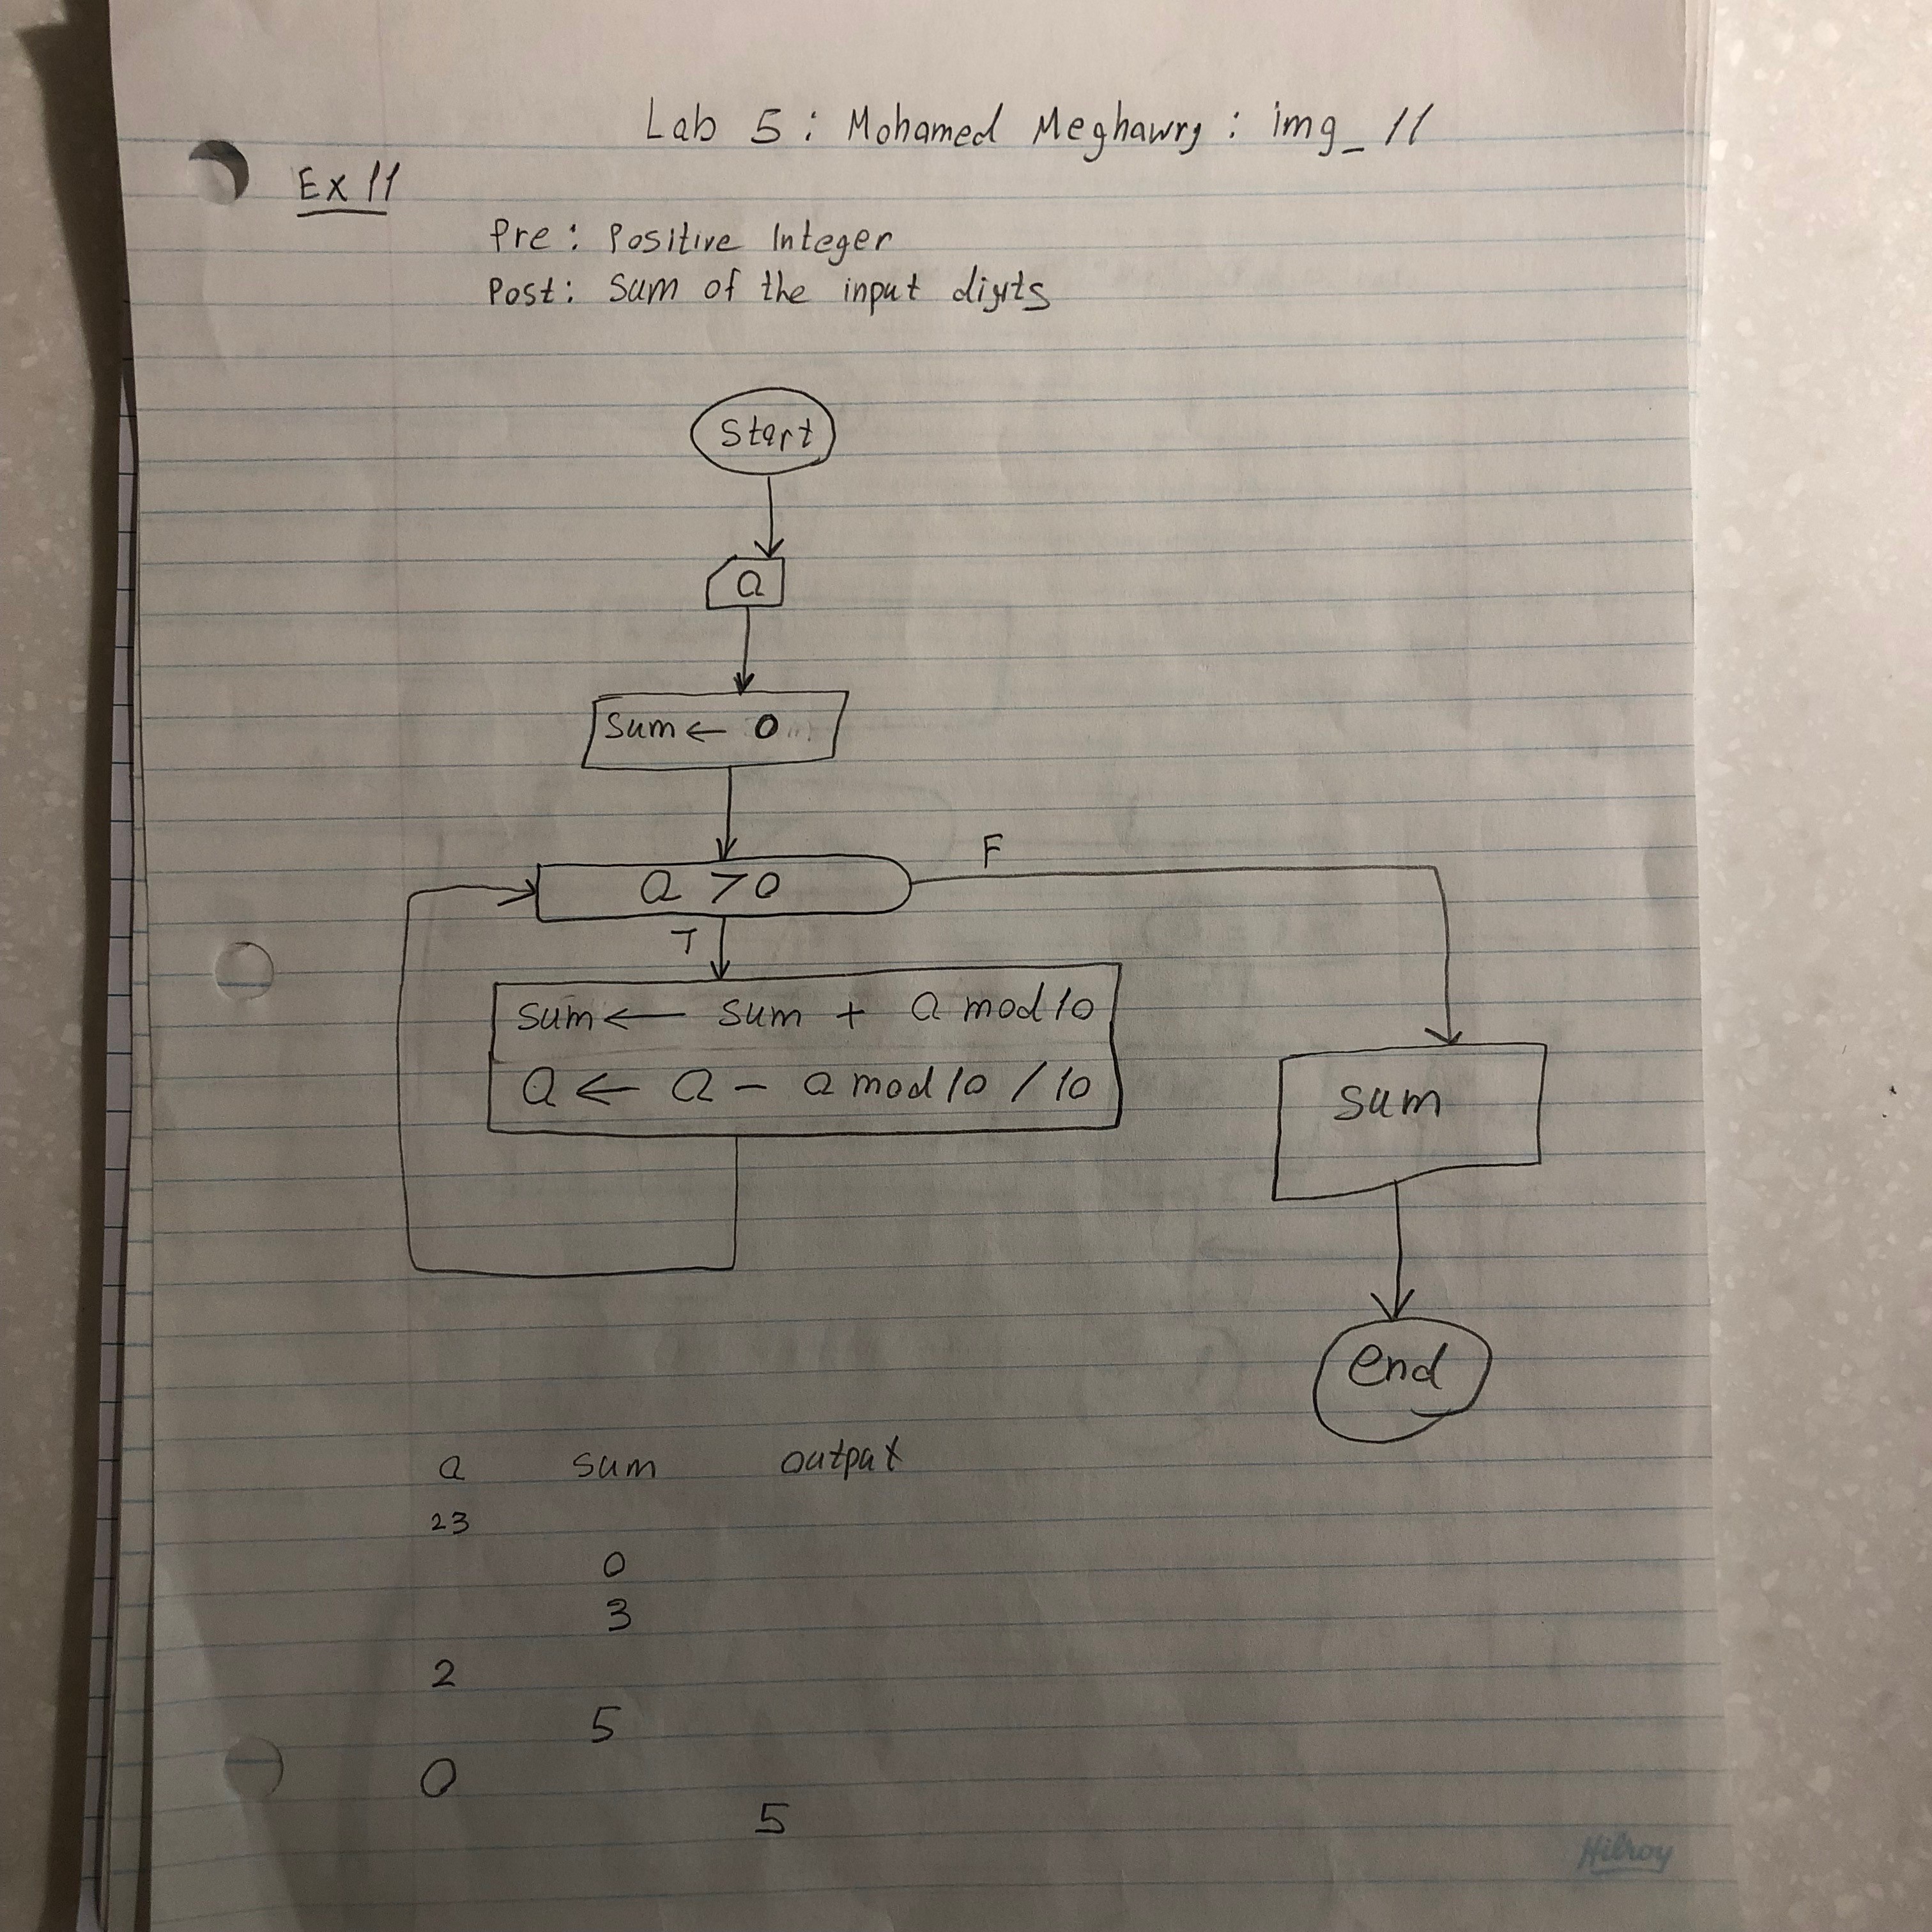 Lab 5 : Mohamed Meghawry : img_11
Ex 11
Pre : Positive Integer
Post : Sum of the input digits
Start
a
Sum ← 0
a > 0
F
T
sum ← sum + a mod 10
a ← a - a mod 10 / 10
sum
end
a sum output
23
0
3
2
5
0
5
Hilroy